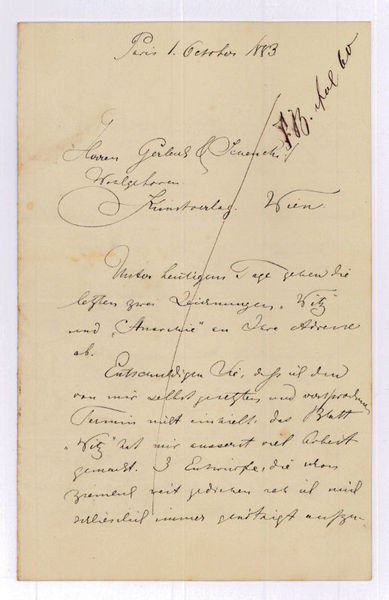 Paris 1. October 1883
F.B. fol 60
Herren Gerlach & Schenck
Wohlgeboren
Kunstverlag. Wien.
Unter heutigem Tage gehen die
letzten zwei Zeichnungen, „Witz"
und „Anarchie" an Ihre Adresse
ab.
Entschuldigen Sie, dass ich den
von mir selbst gesetzten und versprochenen
Termin nicht einhielt, das Blatt
„Witz" hat mir äusserst viel Arbeit
gemacht. 3 Entwürfe, die schon
ziemlich weit gediehen sah ich mich
schliesslich immer genötigt aufzu-